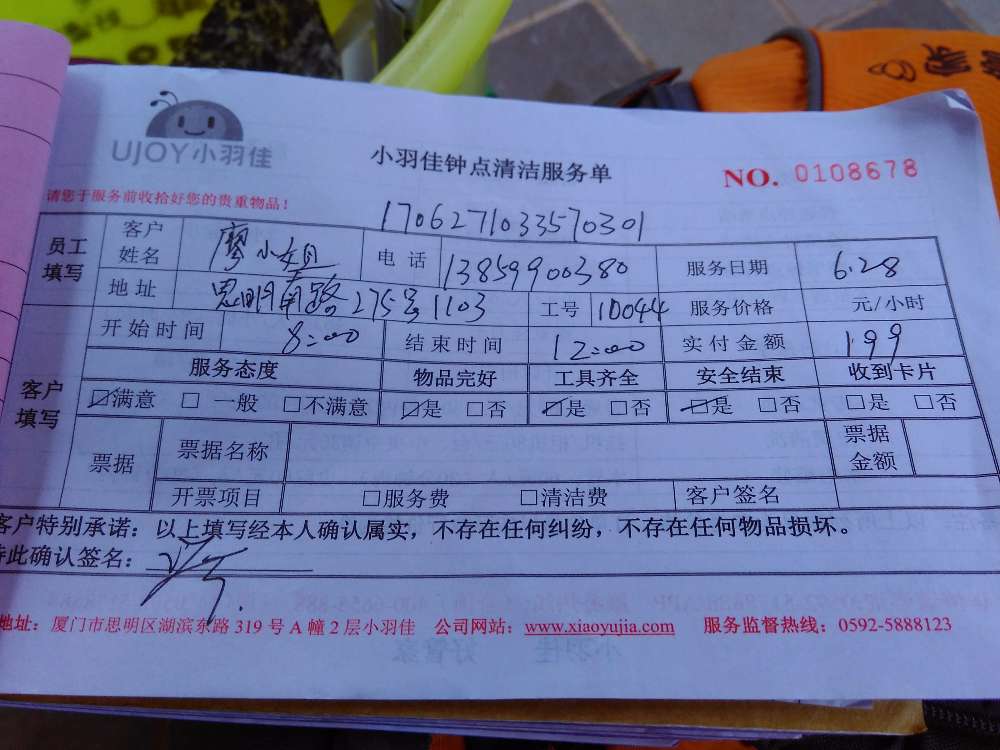 家
UJOY小羽佳
小羽佳钟点清洁服务单
NO. 0108678
请您于服务前收拾好您的贵重物品！
1706271033570301
员工填写 客户姓名 廖小姐 电话 13859900380 服务日期 6.28
地址 思明南路275号1103 工号 10044 服务价格 元/小时
开始时间 8:00 结束时间 12:00 实付金额 199
客户填写 服务态度 物品完好 工具齐全 安全结束 收到卡片
☑满意 □ 一般 □不满意 ☑是 □否 ☑是 □否 ☑是 □否 □是 □否
票据 票据名称 票据金额
开票项目 □服务费 □清洁费 客户签名
客户特别承诺：以上填写经本人确认属实，不存在任何纠纷，不存在任何物品损坏。
特此确认签名：
地址：厦门市思明区湖滨东路 319 号 A 幢 2 层小羽佳 公司网站：www.xiaoyujia.com 服务监督热线：0592-5888123